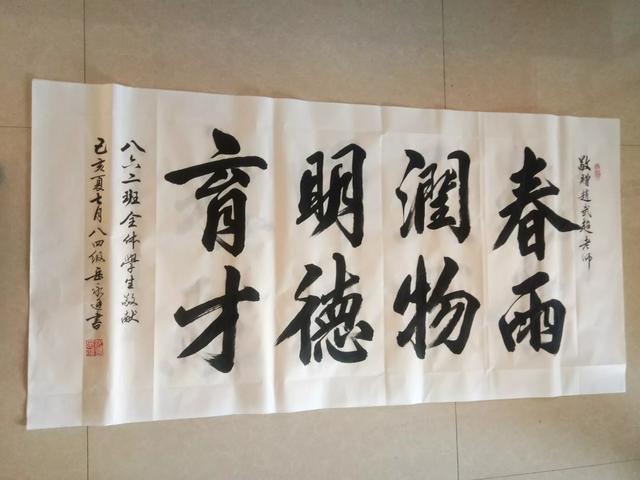 敬贈趙武超老师
春雨
潤物
明德
育才
八六二班全体學生敬献
己亥夏七月八四级岳永连書